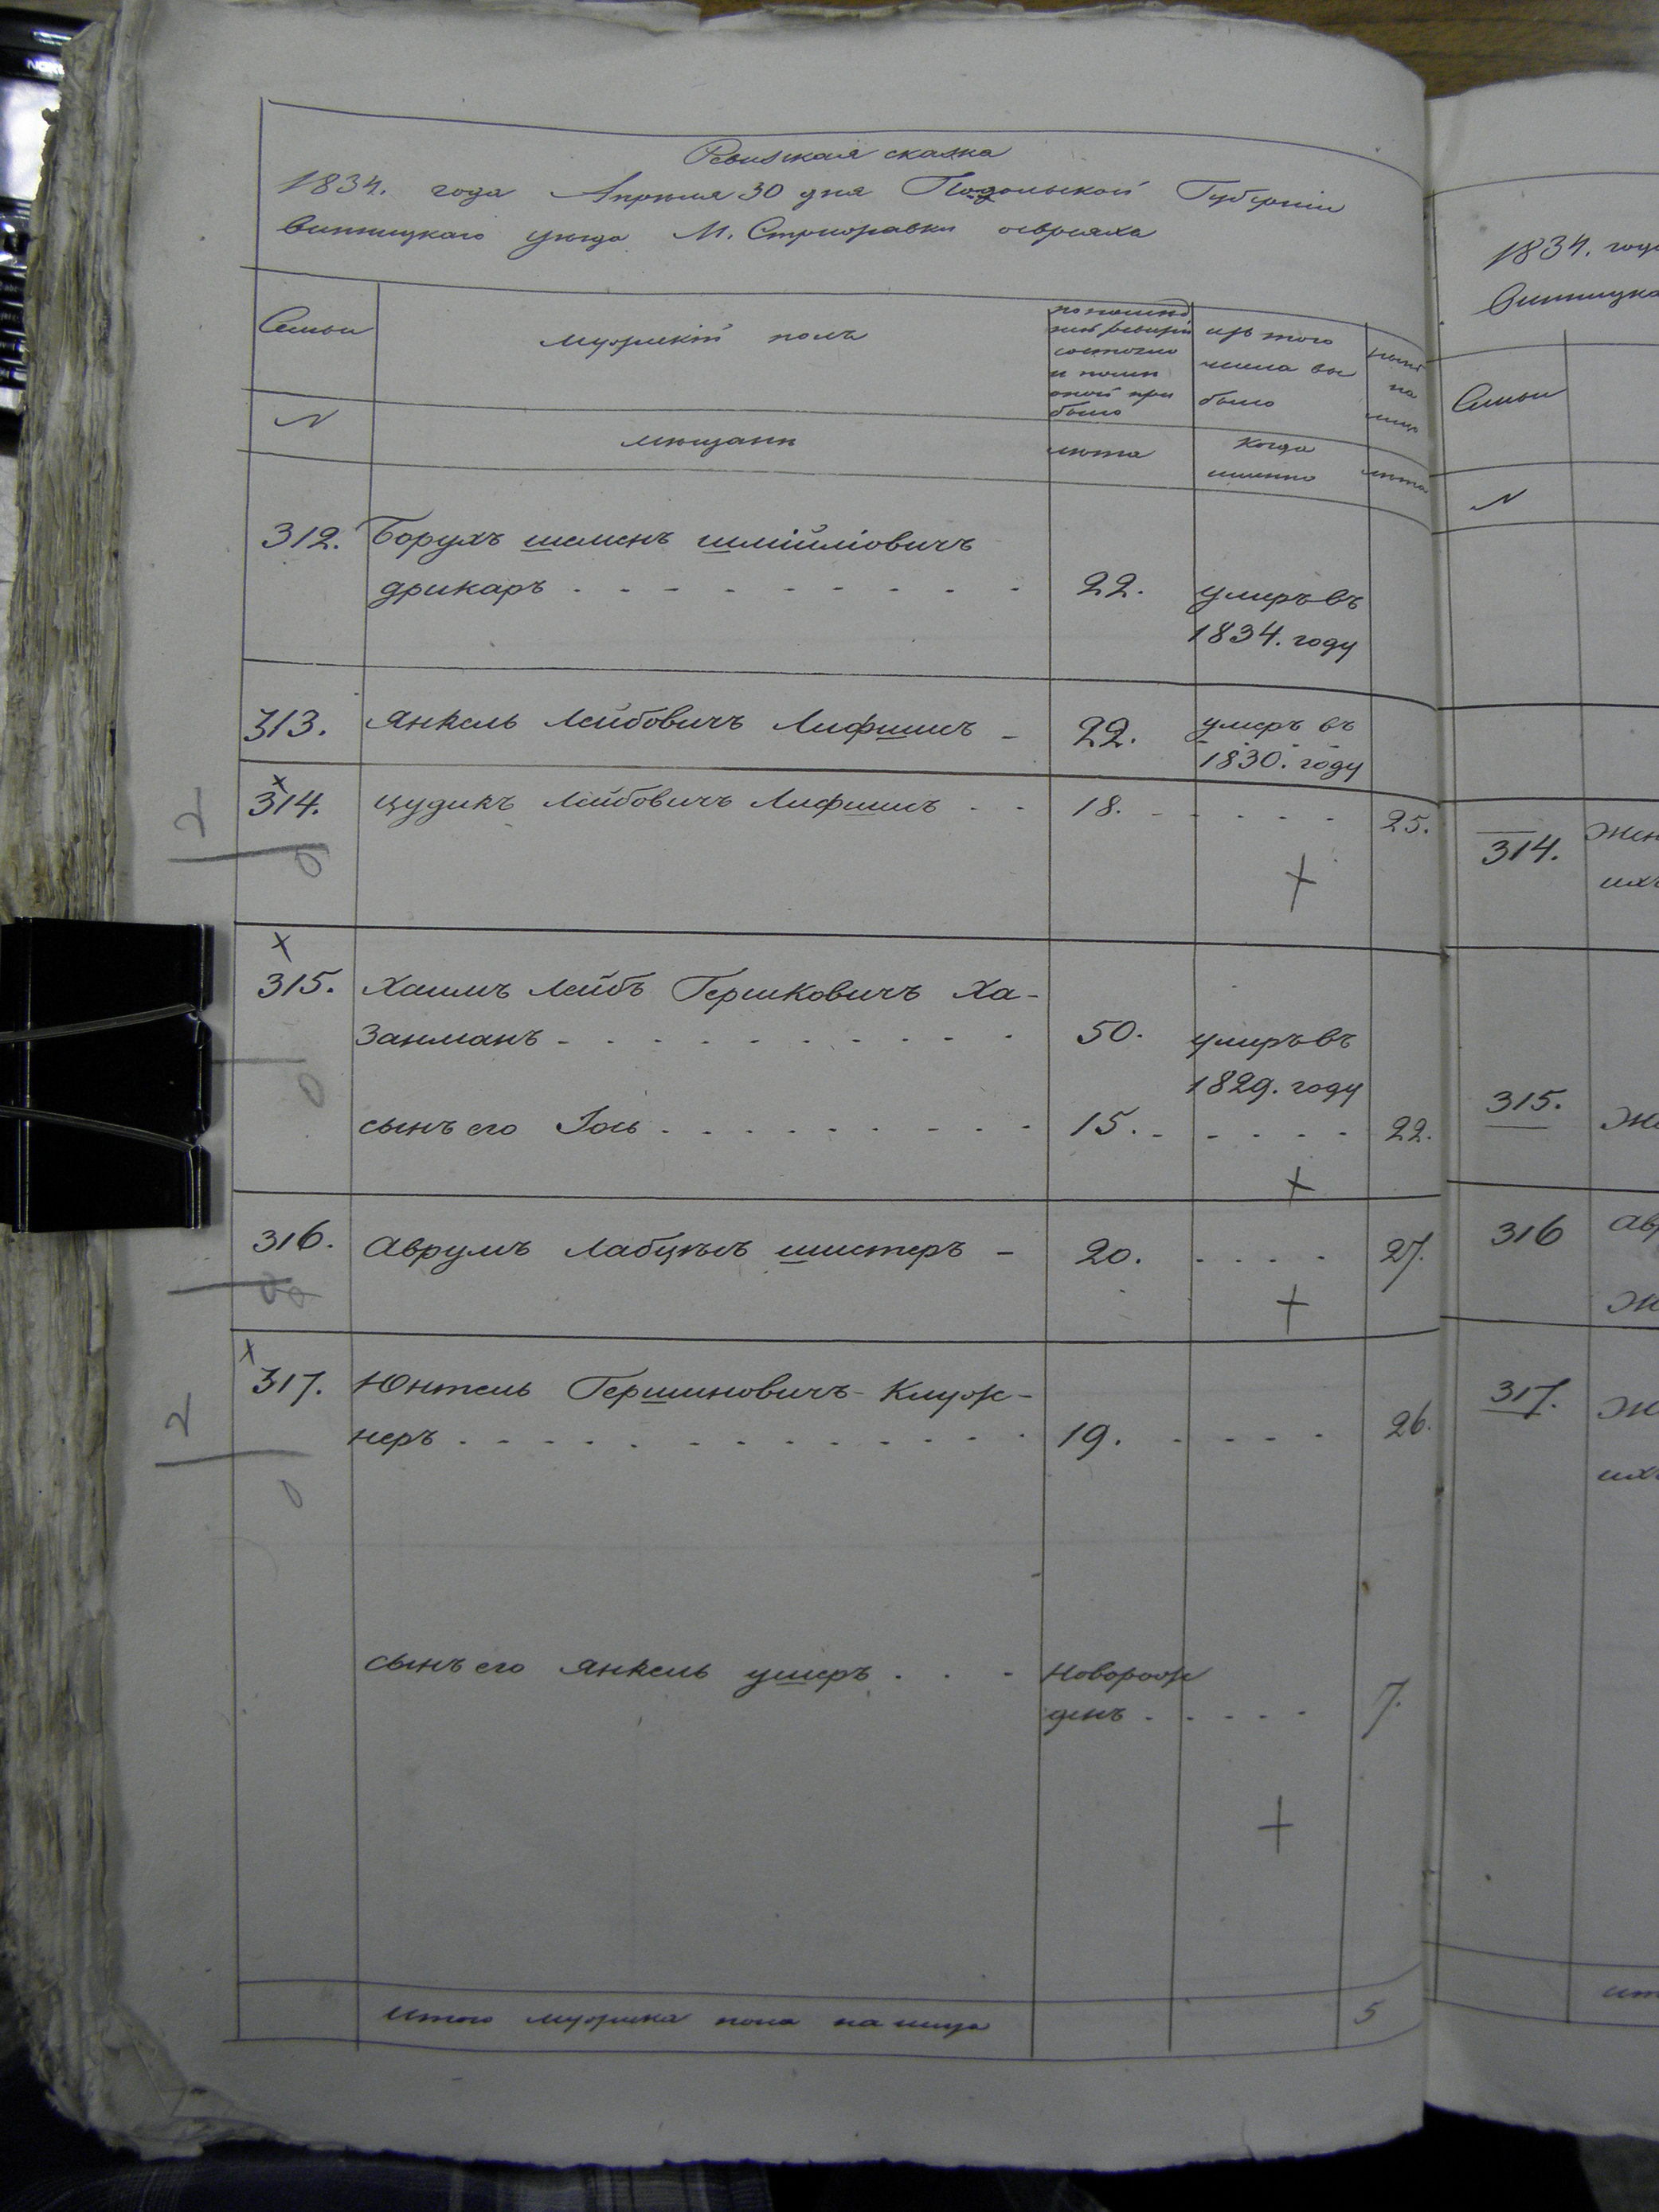 Ревизская сказка
1834. года Апреля 30 дня Подольской Губернiи
Винницкаго уезда М. Стрижавки о евреяхъ
Семьи
мужескiй полъ
по последней ревизiи состояло и после оной прибыло
изъ того числа выбыло
ныне на лицо
N
мещане
лета
Когда именно
лета
312. Борухъ шеменъ шмiйлiовичъ
дрикаръ 22. умеръ въ
1834. году
313. Янкель Лейбовичъ Лифшиcъ 22. умеръ въ
1830. году
314. цудикъ Лейбовичъ Лифшисъ 18. 25.
315. Хаимъ Лейбъ Гершковичъ Ха-
занманъ 50. умеръ въ
1829. году
сынъ его Iось 15. 22.
316. Аврумъ шистеръ 20. 27.
317. Юнтель Гершиновичъ Кнуж-
неръ 19. 26.
сынъ его Янкель ушеръ новорож
денъ 7.
итого мужеска пола на лицо 5
1834. года
Винницка
Семьи
N
314. жен
ихъ
315. же
316 Авр
317.
ит